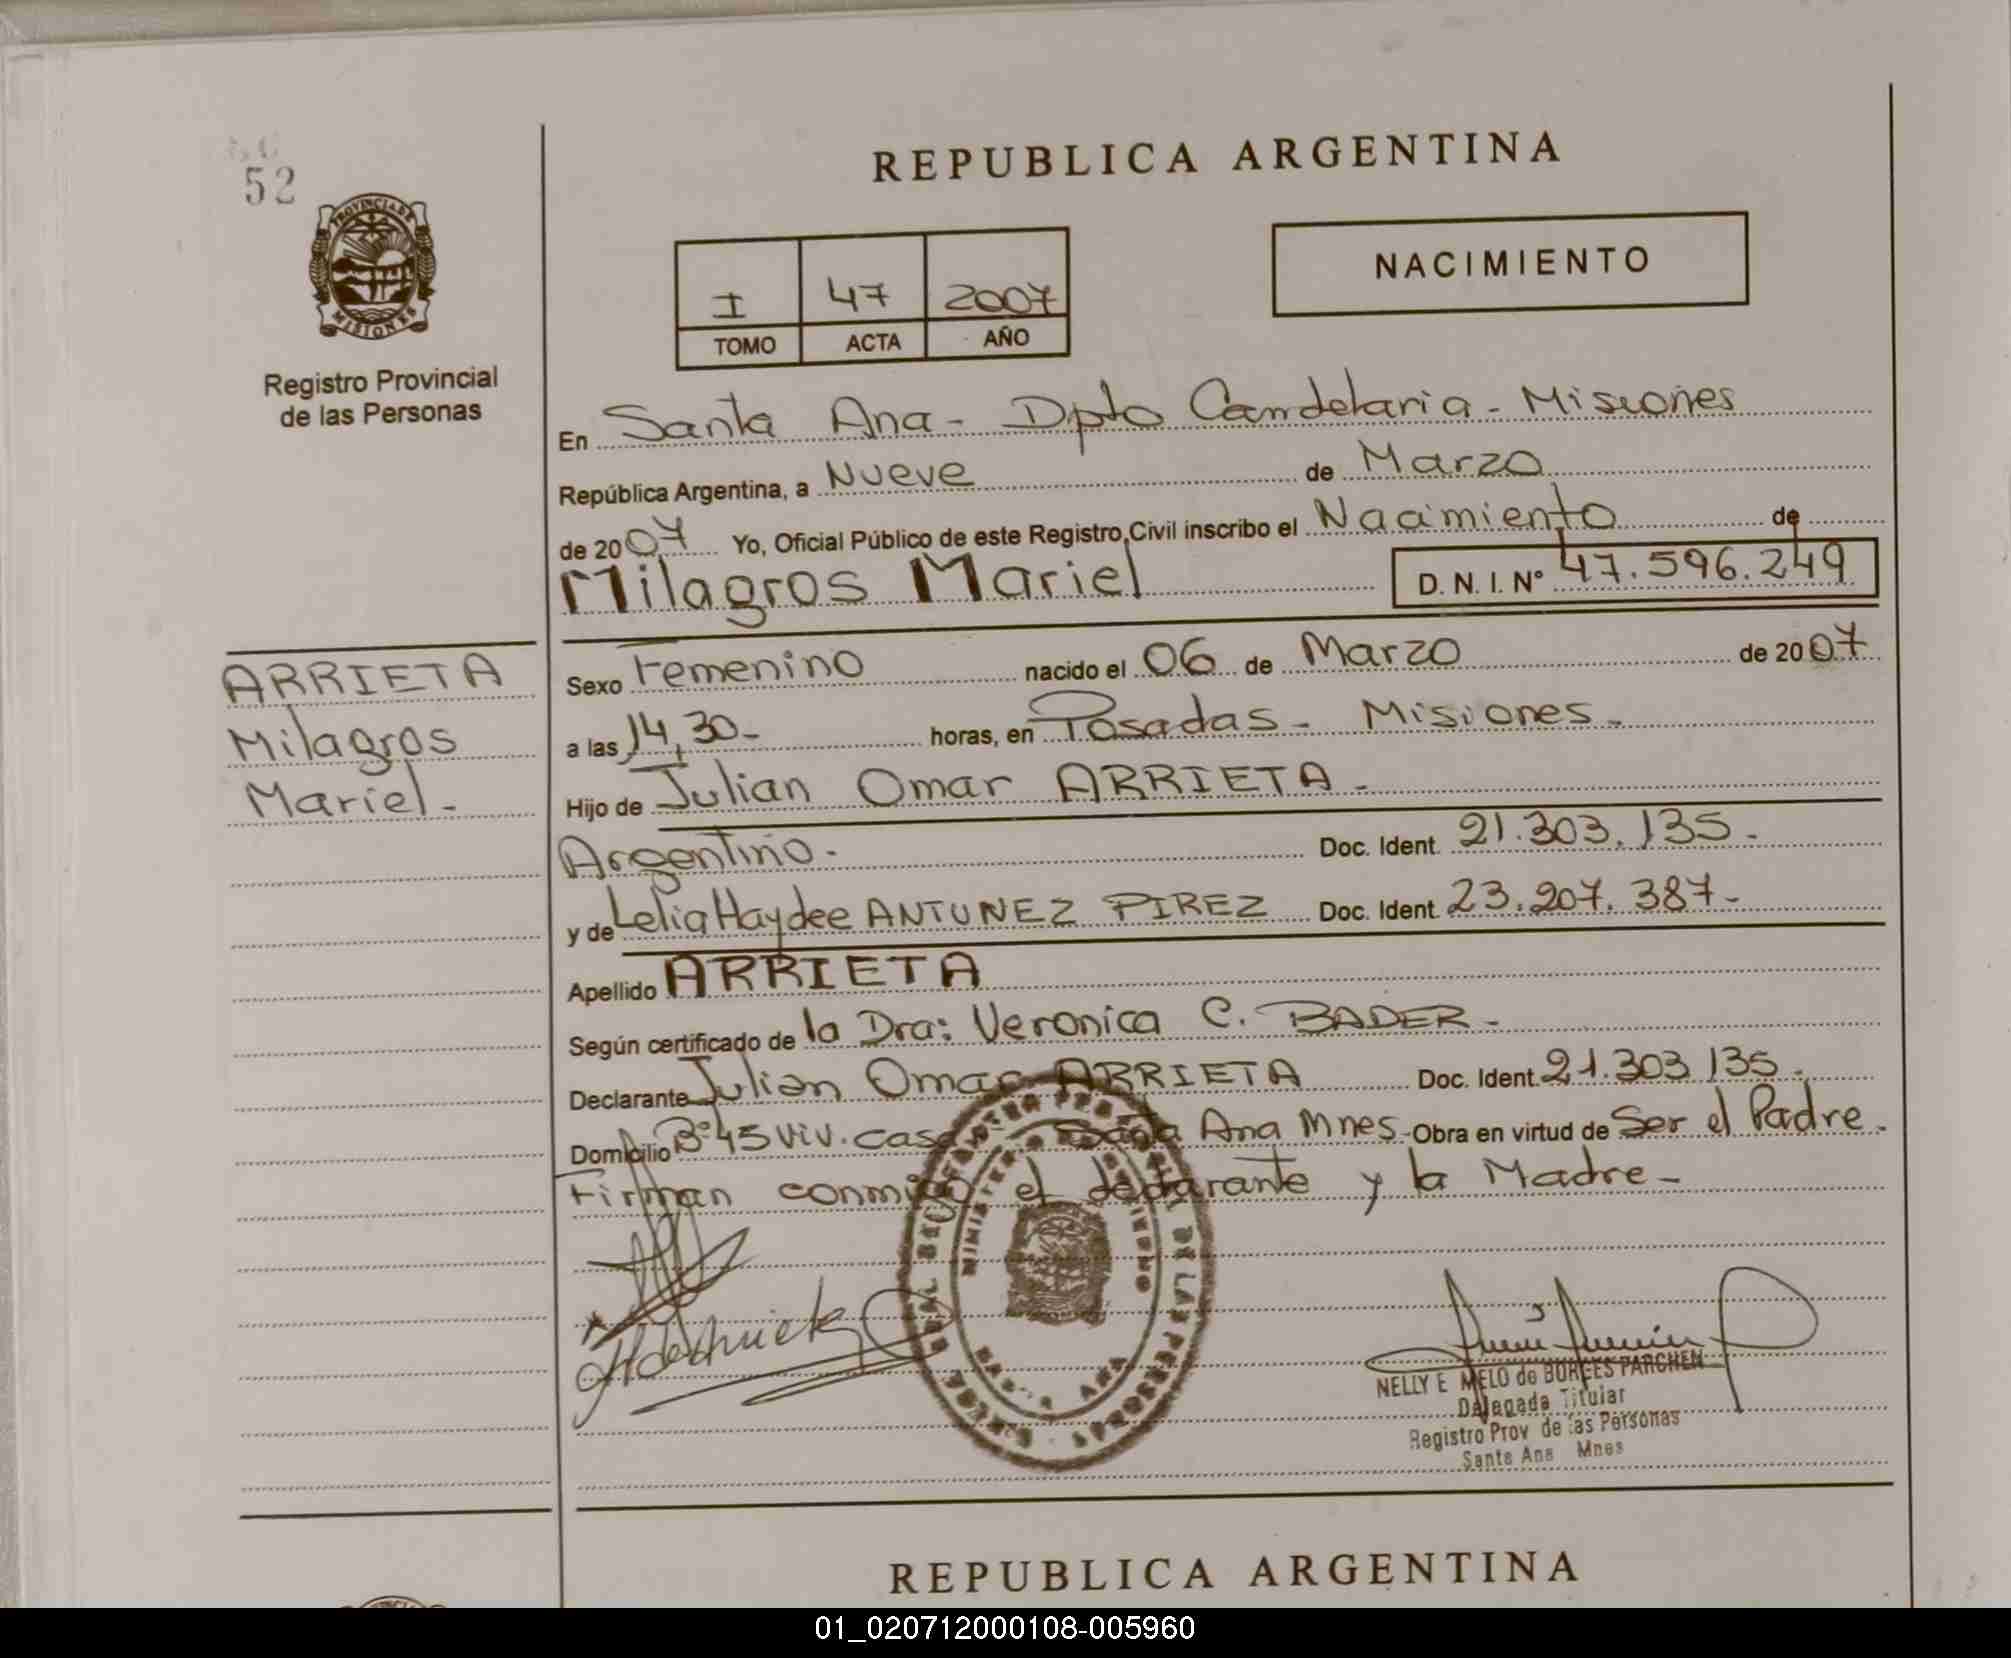 52
PROVINCIA DE
MISIONES
Registro Provincial
de las Personas
REPUBLICA ARGENTINA
I 47 2007
TOMO ACTA AÑO
NACIMIENTO
En Santa Ana - Dpto Candelaria - Misiones
República Argentina, a Nueve de Marzo
de 2007 Yo, Oficial Público de este Registro Civil inscribo el Nacimiento de
Milagros Mariel D. N. I. Nº 47.596.249
ARRIETA
Milagros
Mariel.-
Sexo Femenino nacido el 06 de Marzo de 2007
a las 14,30- horas, en Posadas - Misiones -
Hijo de Julian Omar ARRIETA -
Argentino. Doc. Ident. 21.303.135-
y de Lelia Haydee ANTUNEZ PIREZ Doc. Ident. 23.207.387-
Apellido ARRIETA
Según certificado de la Dra: Veronica C. BADER -
Declarante Julian Omar ARRIETA Doc. Ident. 21.303 135.
Domicilio Bº 45 viv. casa Santa Ana Mnes - Obra en virtud de Ser el Padre.
Firman conmigo el declarante y la Madre -
NELLY E MELO de BORGES PARCHEN
Delegada Titular
Registro Prov de las Personas
Santa Ana Mnes
REPUBLICA ARGENTINA
01_020712000108-005960